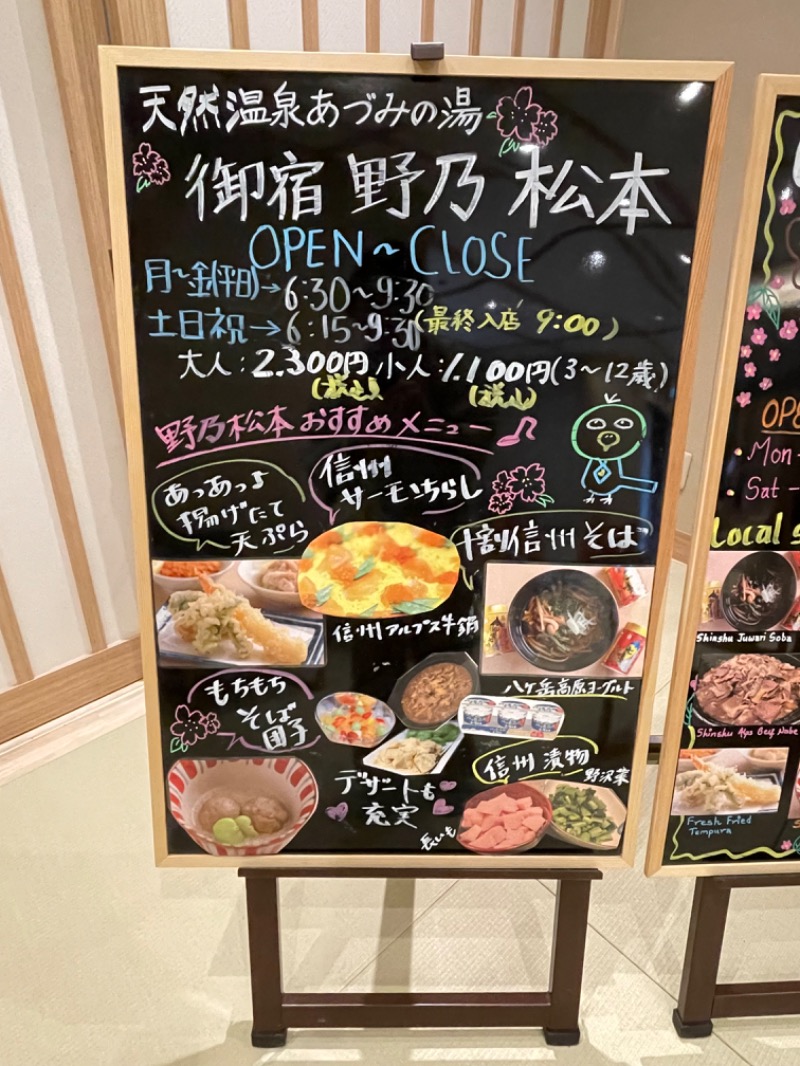 天然温泉あづみの湯
御宿 野乃 松本
OPEN~CLOSE
月~金(平日)→6:30~9:30
土日祝→6:15~9:30(最終入店 9:00)
大人:2.300円 小人:1.100円(3~12歳)
(税込) (税込)
野乃松本おすすめメニュー
あっあっよ
揚げたて
天ぷら
信州
サーモンちらし
十割信州そば
信州アルプス牛鍋
八ヶ岳高原ヨーグルト
もちもち
そば
団子
信州 漬物
野沢菜
デザートも
充実
長いも
OPE
Mon-
Sat-
Local s
Shinshu Juwari Soba
Shinshu Alps Beef Nabe
Fresh Fried
Tempura